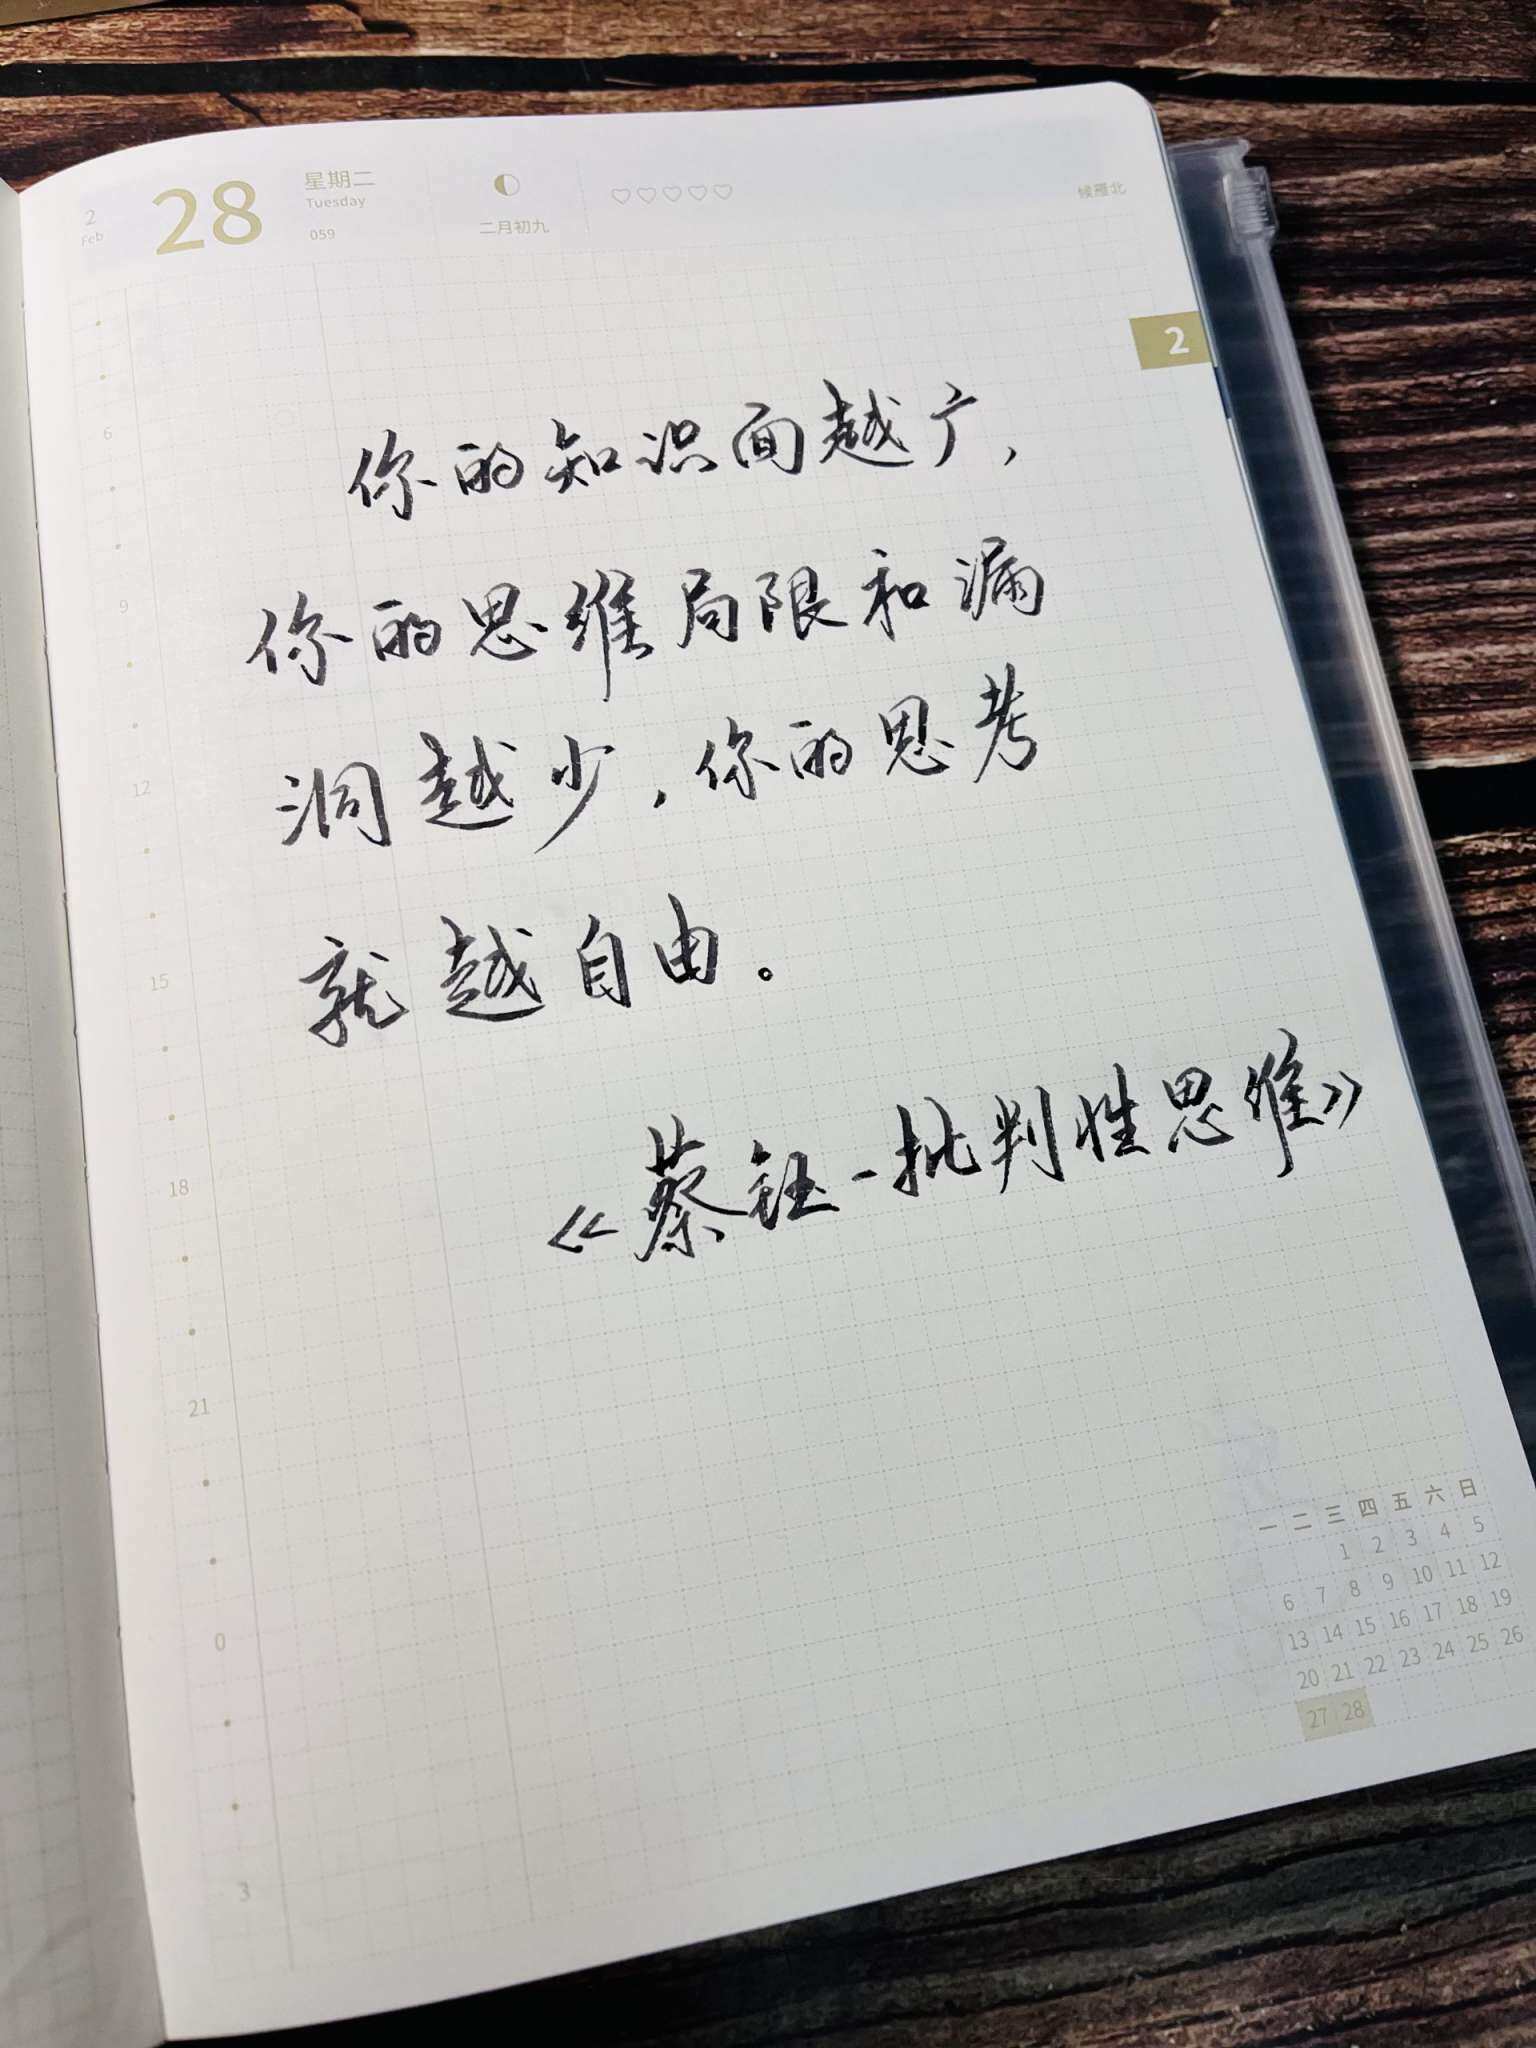 2
Feb
28
星期二
Tuesday
059
二月初九
候雁北
2
你的知识面越广,
你的思维局限和漏
洞越少,你的思考
就越自由。
《蔡钰-批判性思维》
6
9
12
15
18
21
0
3
一 二 三 四 五 六 日
1 2 3 4 5
6 7 8 9 10 11 12
13 14 15 16 17 18 19
20 21 22 23 24 25 26
27 28